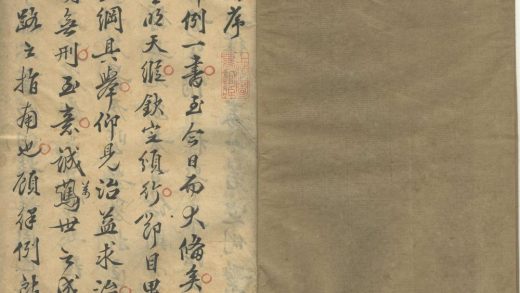 序
律例一書至今日而大備矣
明天縱欽定頒行節目畢
綱具舉仰見治益求治
無刑至意誠萬世之
路之指南也顧律例